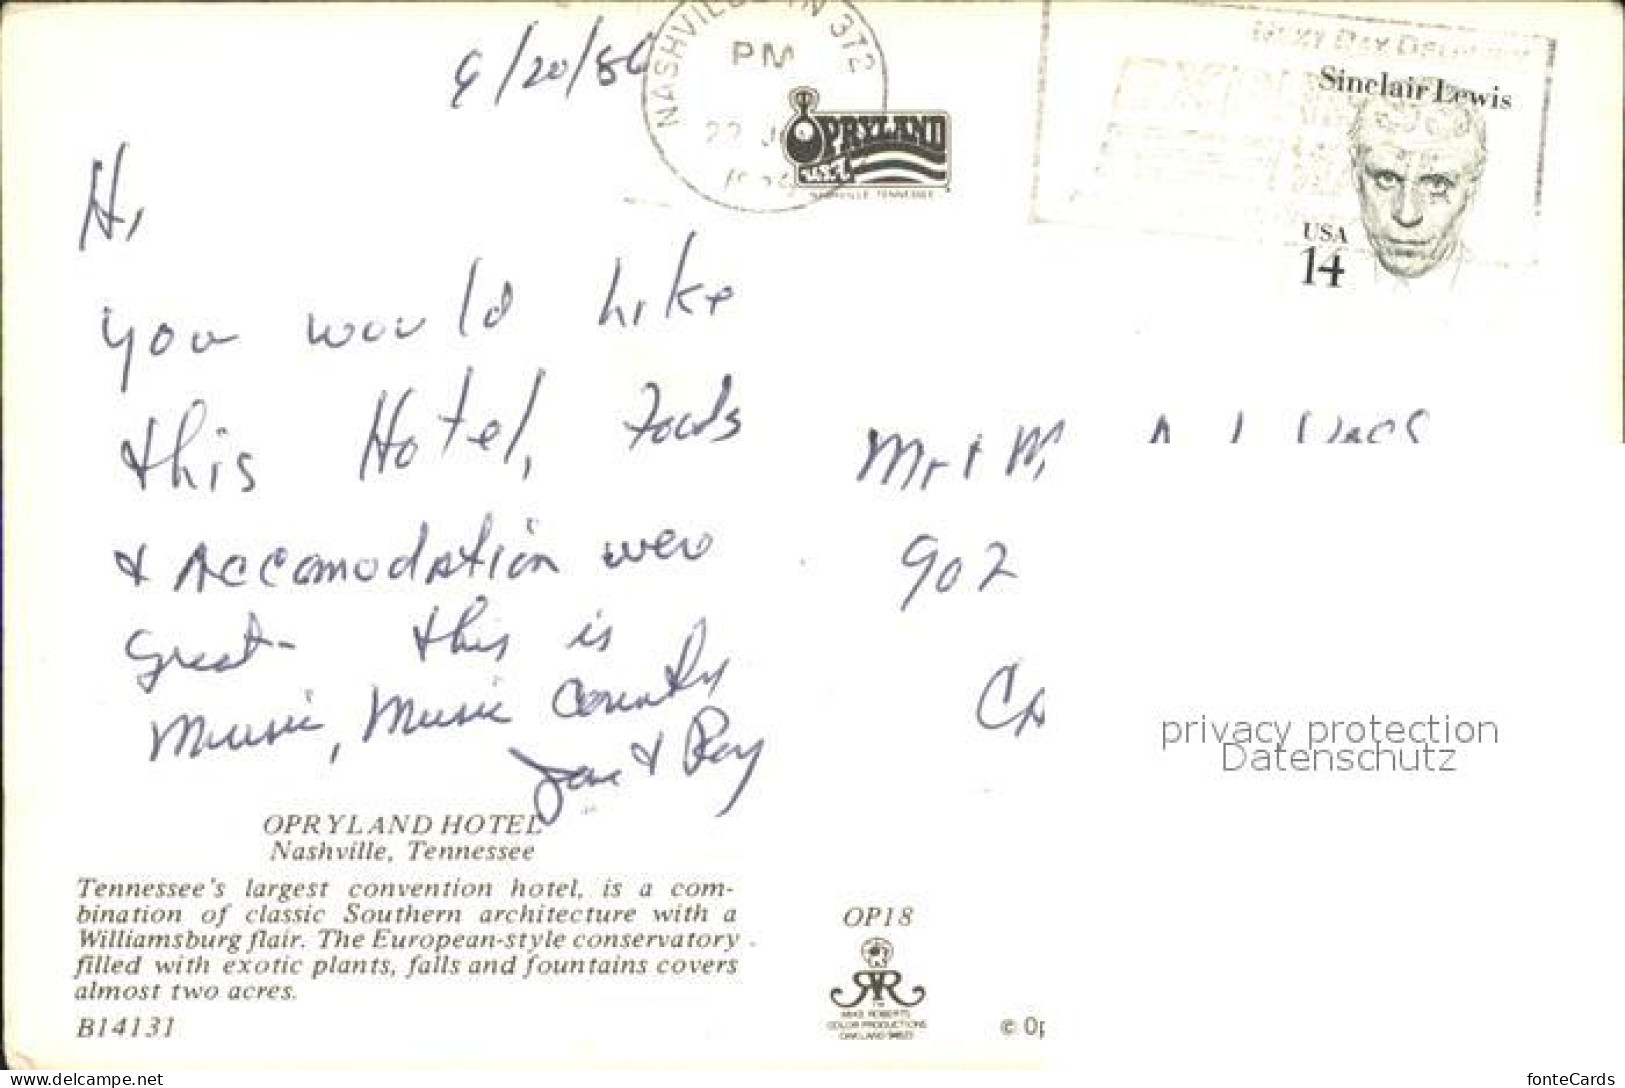 6/20/86
NASHVILLE TN 372
PM
22 J
OPRYLAND
U.S.A.
NASHVILLE, TENNESSEE
NEXT DAY DELIVERY
Sinclair Lewis
USA
14
Hi,
You would like
this Hotel, Foods
& Accomodation were
great- this is
Music, Music Country
Jane & Ray
Mr + M
902
CA
privacy protection
Datenschutz
OPRYLAND HOTEL
Nashville, Tennessee
Tennessee's largest convention hotel, is a com-
bination of classic Southern architecture with a
Williamsburg flair. The European-style conservatory
filled with exotic plants, falls and fountains covers
almost two acres.
B14131
OP18
MIKE ROBERTS
COLOR PRODUCTIONS
OAKLAND 94623
© Op
www.delcampe.net
fonteCards